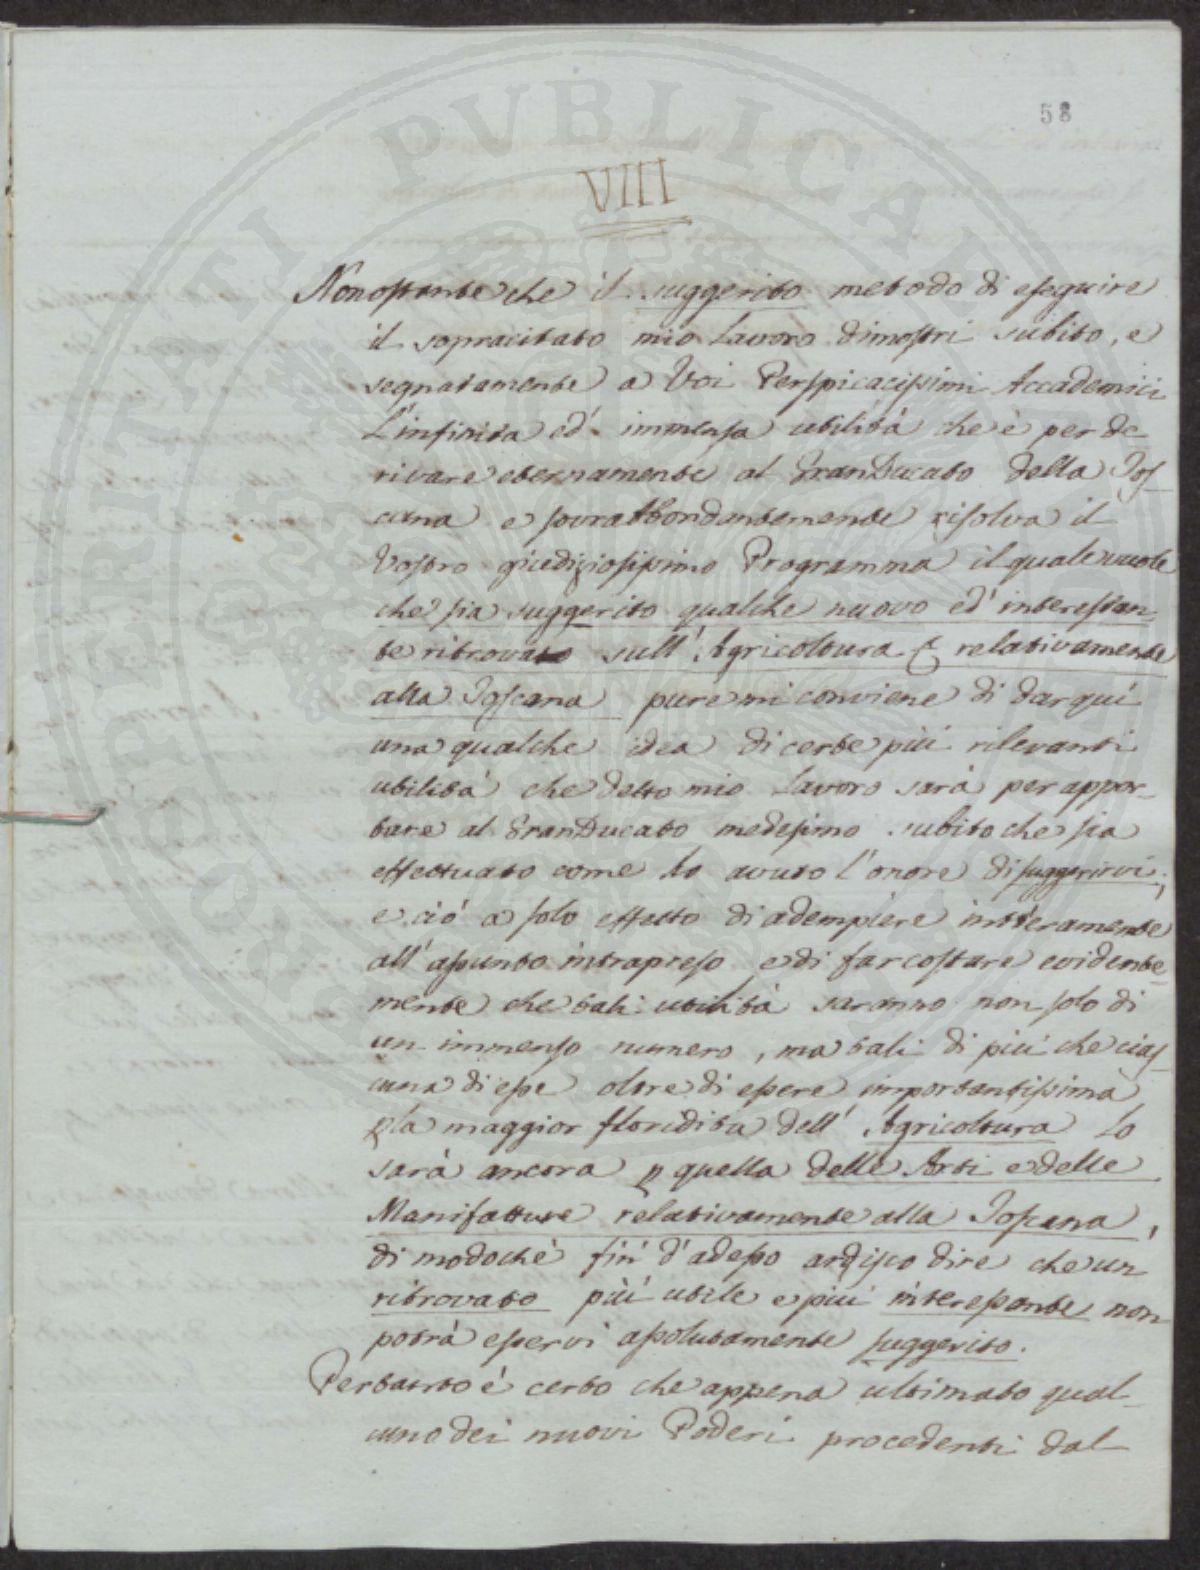 PROSPERITATI PUBLICAE AUGENDAE
58
VIII
Nonostante che il suggerito metodo di eseguire
il sopracitato mio Lavoro dimostri subito, e
segnatamente a Voi Perspicacissimi Accademici
L'infinita ed' immensa utilità che è per de-
rivare eternamente al GranDucato della Tos-
cana e sovrabbondantemente risolva il
Vostro giudiziosissimo Programma il quale vuole
che sia suggerito qualche nuovo ed' interessan-
te ritrovato sull' Agricoltura e relativamente
alla Toscana pure mi conviene di dar quì
una qualche idea di certe più rilevanti
utilità che detto mio Lavoro sarà per appor-
tare al GranDucato medesimo subito che sia
effettuato come ho avuto l'onore di suggerirvi;
e ciò a solo effetto di adempiere intieramente
all' assunto intrapreso e di far costare evidente-
mente che tali utilità saranno non solo di
un immenso numero, ma tali di più che cias-
cuna di esse oltre di essere importantissima
p la maggior floridità dell' Agricoltura Lo
sarà ancora p quella delle Arti e delle
Manifatture relativamente alla Toscana,
di modochè fin' d'adesso ardisco dire che un
ritrovato più utile e più interessante non
potrà esservi assolutamente suggerito.
Pertanto è certo che appena ultimato qual-
cuno dei nuovi Poderi procedenti dal